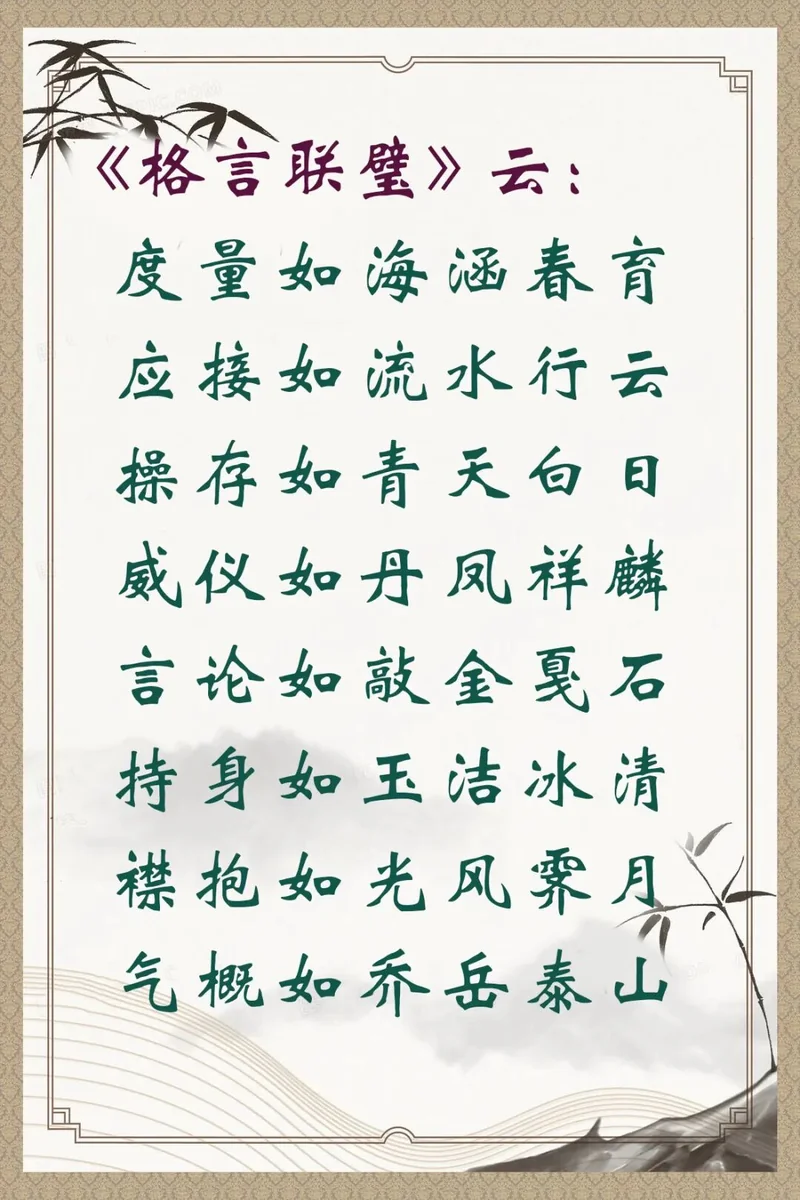 《格言联璧》云：
度量如海涵春育
应接如流水行云
操存如青天白日
威仪如丹凤祥麟
言论如敲金戛石
持身如玉洁冰清
襟抱如光风霁月
气概如乔岳泰山